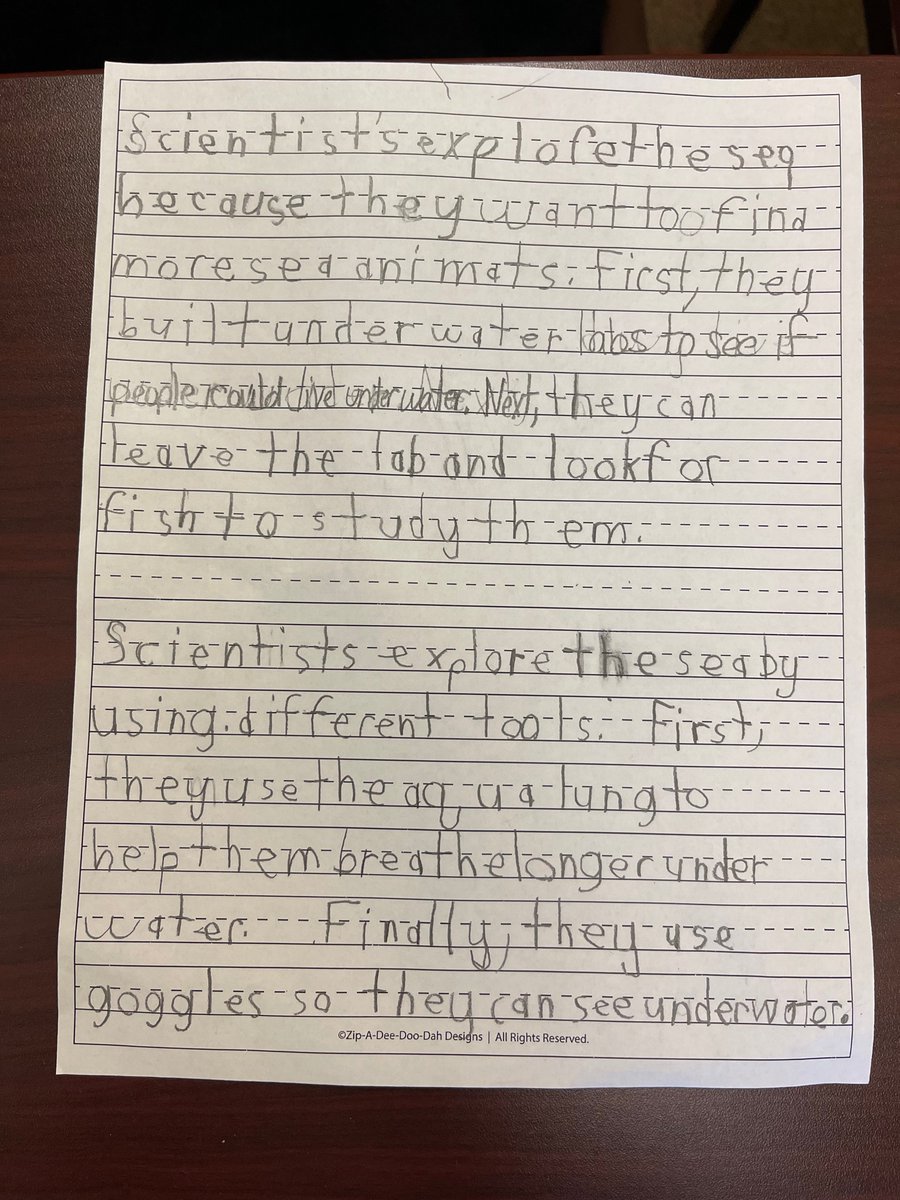 Scientist's explore the sea
because they want too find
more sea animals. First, they
built under water labs to see if
people could live under water. Next, they can
leave the lab and look for
fish to study them.
Scientists explore the sea by
using different tools. First,
they use the aqua lung to
help them breathe longer under
water. Finally, they use
goggles so they can see underwater.
©Zip-A-Dee-Doo-Dah Designs | All Rights Reserved.